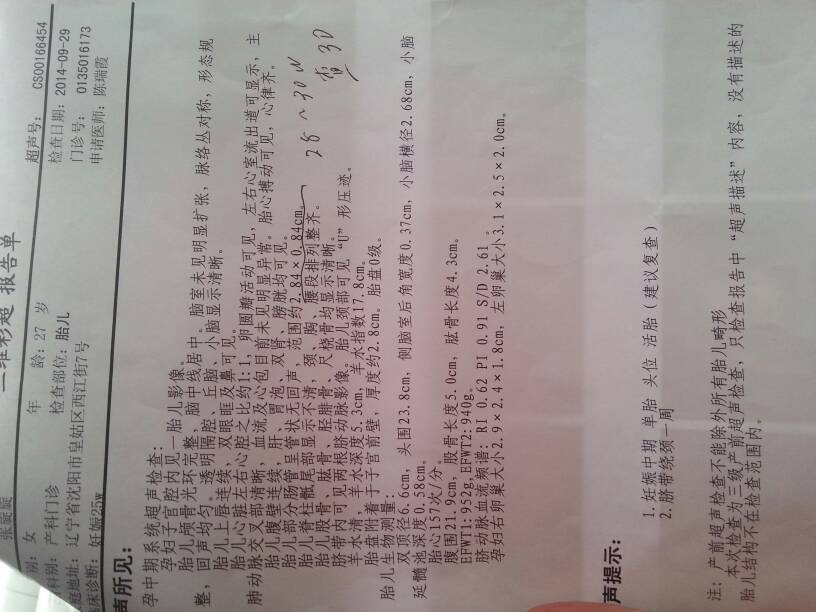 三维彩超 报告单
超声号: CS00166454
别: 女 年 龄: 27 岁 检查日期: 2014-09-29
科别: 产科门诊 检查部位: 胎儿 门诊号: 0135016173
庭地址: 辽宁省沈阳市皇姑区西江街7号 申请医师: 陈瑞霞
床诊断: 妊娠25w
声所见:
孕中期系统超声检查:
孕妇子宫腔内见一胎儿影像。
胎儿颅骨光环完整, 脑中线居中。脑室未见明显扩张, 脉络丛对称, 形态规
整, 回声均匀。透明隔腔、丘脑、小脑显示清晰。
胎儿上唇连续, 双眼眶及鼻可见。
胎儿心脏左右心腔之比约1:1, 卵圆瓣活动可见, 左右心室流出道可显示, 主
肺动脉交叉部清晰, 血流及心包目前未见明显异常。胎心搏动可见, 心律齐。
胎儿腹壁连续, 肝、胃泡、双肾、膀胱均可见。
胎儿部分肠管呈管状无回声, 范围约2.84×0.84cm。
胎儿脊柱骶尾部显示不清, 颈、胸、腰段排列整齐。
胎儿股骨、肱骨、胫腓骨、尺桡骨均显示清晰。
脐带内可见两根脐动脉影像。胎儿颈部可见“U”形压迹。
羊水清, 羊水深度5.3cm, 羊水指数17.8cm。
胎盘附着于子宫前壁, 厚度约2.8cm。胎盘0级。
28~30W
查3D
胎儿生物测量:
双顶径6.6cm, 头围23.8cm, 侧脑室后角宽度0.37cm, 小脑横径2.68cm, 小脑
延髓池深度0.58cm。
胎心157次/分。
腹围21.9cm, 股骨长度5.0cm, 肱骨长度4.3cm。
EFWT1:952g,EFWT2:940g。
脐动脉血流频谱: RI 0.62 PI 0.91 S/D 2.61 。
孕妇右卵巢大小2.9×2.4×1.8cm, 左卵巢大小3.1×2.5×2.0cm。
声提示:
1.妊娠中期 单胎 头位 活胎 (建议复查)
2.脐带绕颈一周
注: 产前超声检查不能除外所有胎儿畸形
本次检查为三级产前超声检查, 只检查报告中“超声描述”内容, 没有描述的
胎儿结构不在检查范围内。